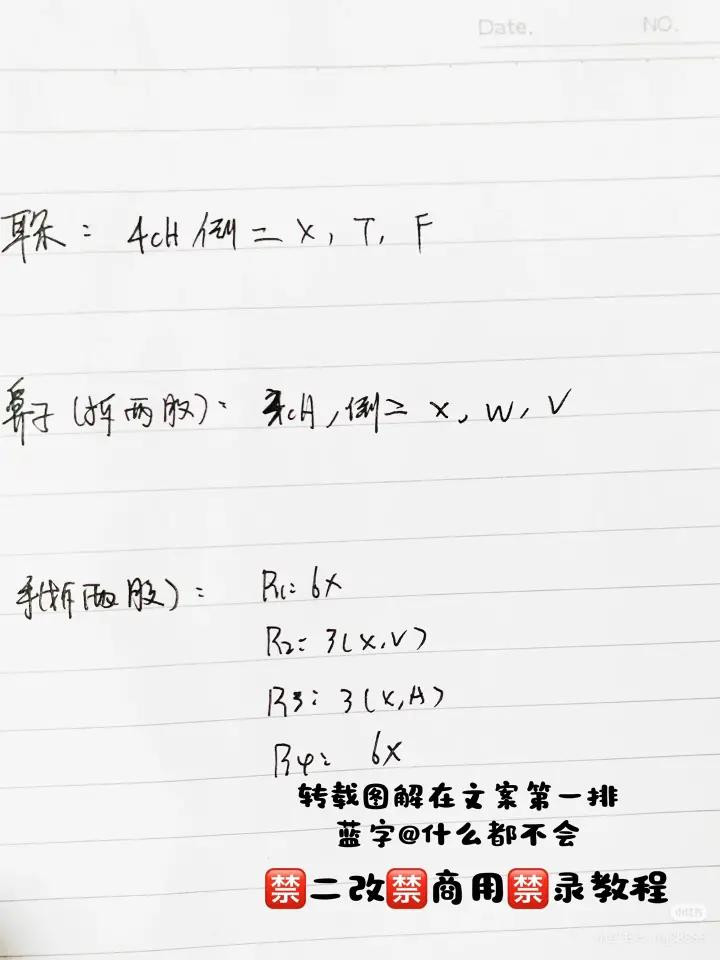 Date. NO.
耳朵：4cH 倒二 X，T，F
鼻子(拆两股)：cH，倒二 X，W，V
手(拆两股)：R1：6X
R2：3(X,V)
R3：3(X,A)
R4：6X
转载图解在文案第一排
蓝字@什么都不会
禁二改禁商用禁录教程
小红书